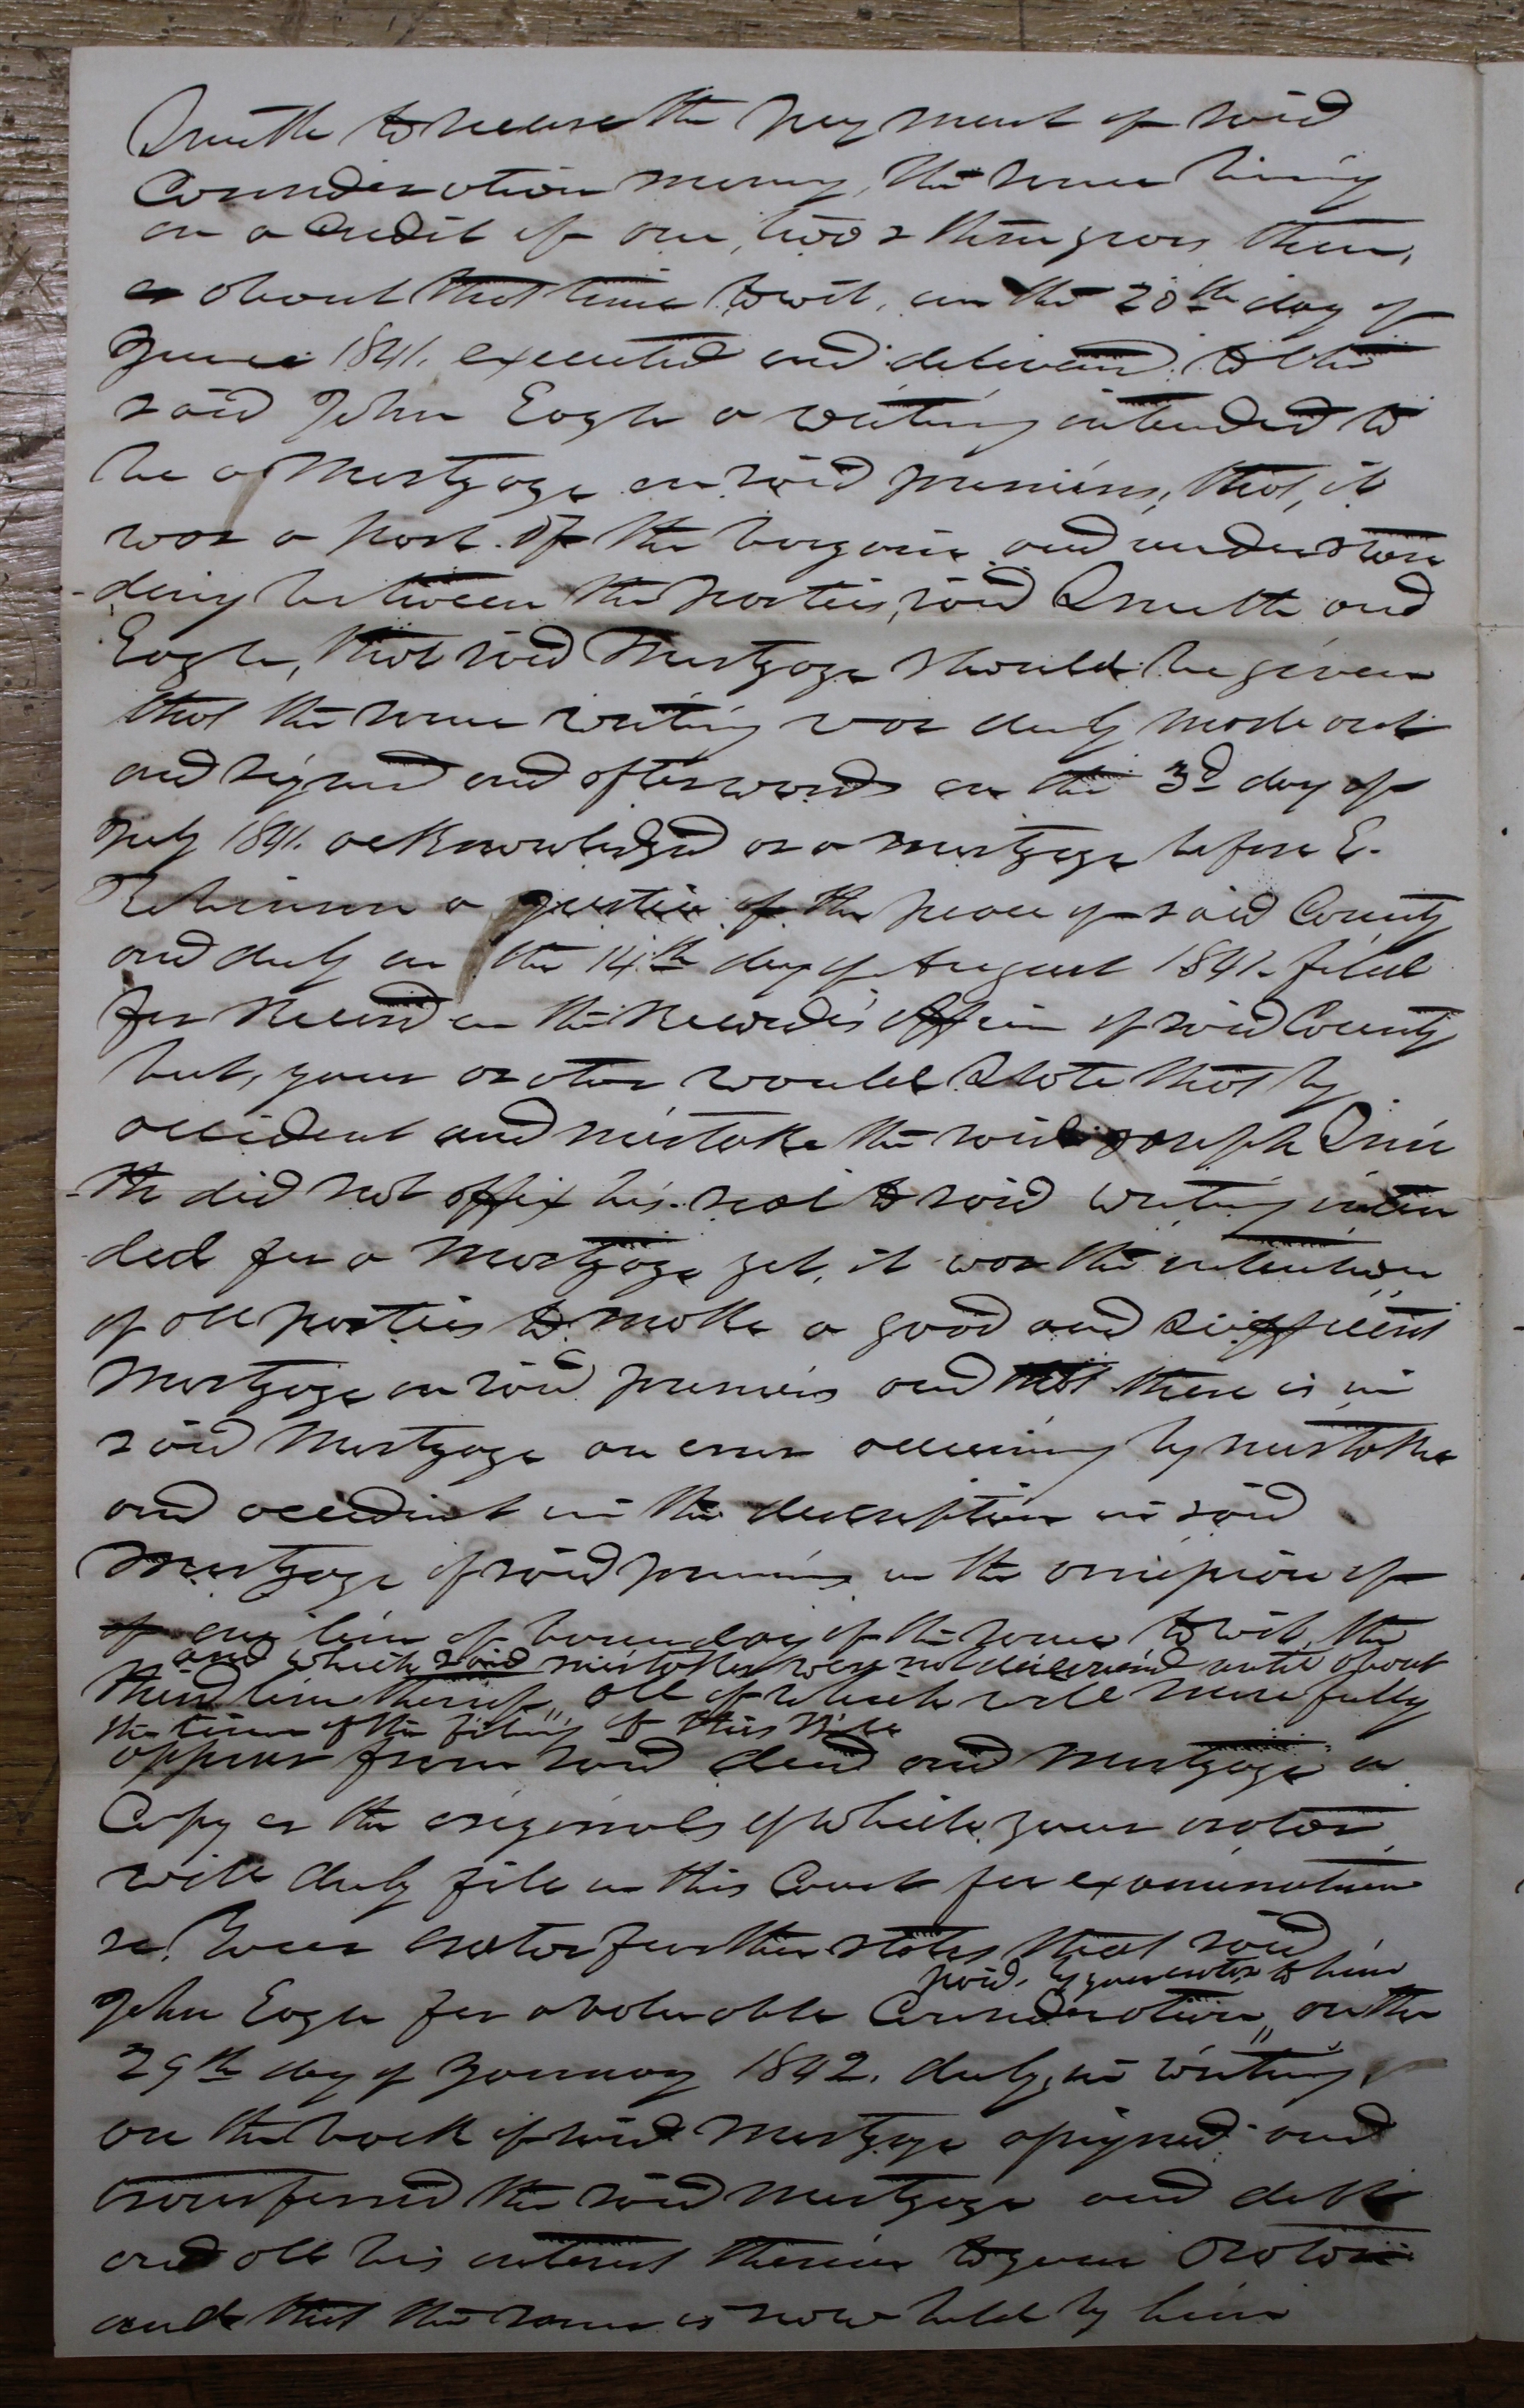 Smith to secure the payment of said
Consideration money, the same being
on a credit of one, two & three years then,
or about that time towit, on the 28th day of
June 1841. executed and delivered to the
said John Eagle a writing intended to
be a Mortgage on said premises, that, it
was a part of the bargain and understan
-ding between the parties, said Smith and
Eagle, that said Mortgage should be given
that the same writing was duly made out
and signed and afterwards on the 3d day of
July 1841. acknowledged as a mortgage before E.
Robinson a Justice of the peace of said County
and duly on the 14th day of August 1841 filed
for Record in the Recorders office of said County
but, your orator would State that by
accident and mistake the said Joseph Smi
-th did not affix his seal to said writing inten
-ded for a Mortgage yet, it was the intention
of all parties to make a good and sufficient
Mortgage on said premises and that there is in
said Mortgage an error occuring by mistake
and accedent in the description in said
Mortgage of said premises in the omission of
of one line of boundary of the same towit, the
and which said mistakes were not discovered until about
third line thereof, all of which will more fully
the time of the filing of this Bill
appear from said deed and Mortgage a
Copy or the originals of which your orator
will duly file in this Court for examination
&c. Your Orator further states that said
paid, by your orator to him
John Eagle for a valuable Consideration, on the
29th day of January 1842. duly, in writing
on the back of said Mortgage assigned and
transferred the said Mortgage and debt
and all his interest therein to your Orator
and that the same is now held by him